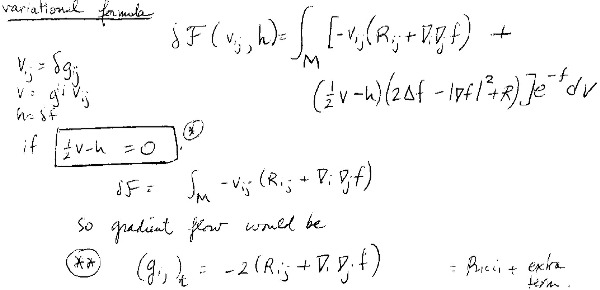 variational formula
δF(v_ij, h) = ∫_M [-v_ij(R_ij + ∇_i∇_j f) +
(½v-h)(2Δf - |∇f|² + R)]e^{-f} dV
v_ij = δg_ij
v = g^{ij} v_ij
h = δf
if ½v-h = 0. (*)
δF = ∫_M -v_ij (R_ij + ∇_i ∇_j f)
so gradient flow would be
(**) (g_ij)_t = -2(R_ij + ∇_i ∇_j f) = Ricci + extra
term.